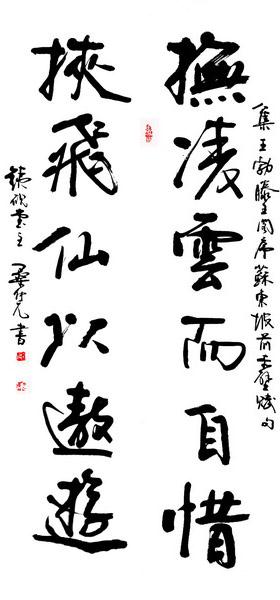 集王勃滕王閣序蘇東坡前赤壁賦句
撫凌雲而自惜
挾飛仙以遨遊
書